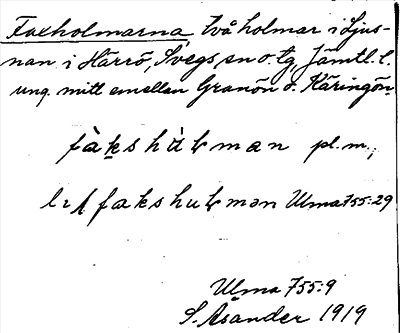 Faxholmarna, två holmar i Ljus-
nan i Härrö, Svegs sn o. tg, Jämtl. l.
ung. mitt emellan Granön o. Käringön.
fàkshùɫman pl. m.;
fakshuɫmən Ulma 755:29
Ulma 755:9
S. Åsander 1919